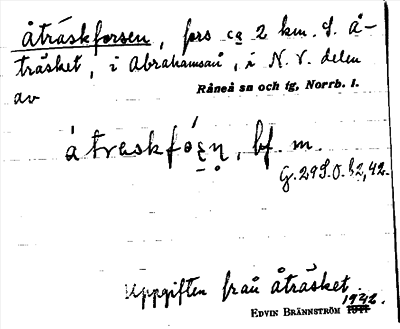 Åträskforsen, fors ca 2 km. S. Å-
träsket, i Abrahamsån, i N.V. delen
av
Råneå sn och tg, Norrb. l.
bf. m.
G. 29 S.O. b2, 42.
Uppgiften från Åträsket.
1942.
EDVIN BRÄNNSTRÖM 1941